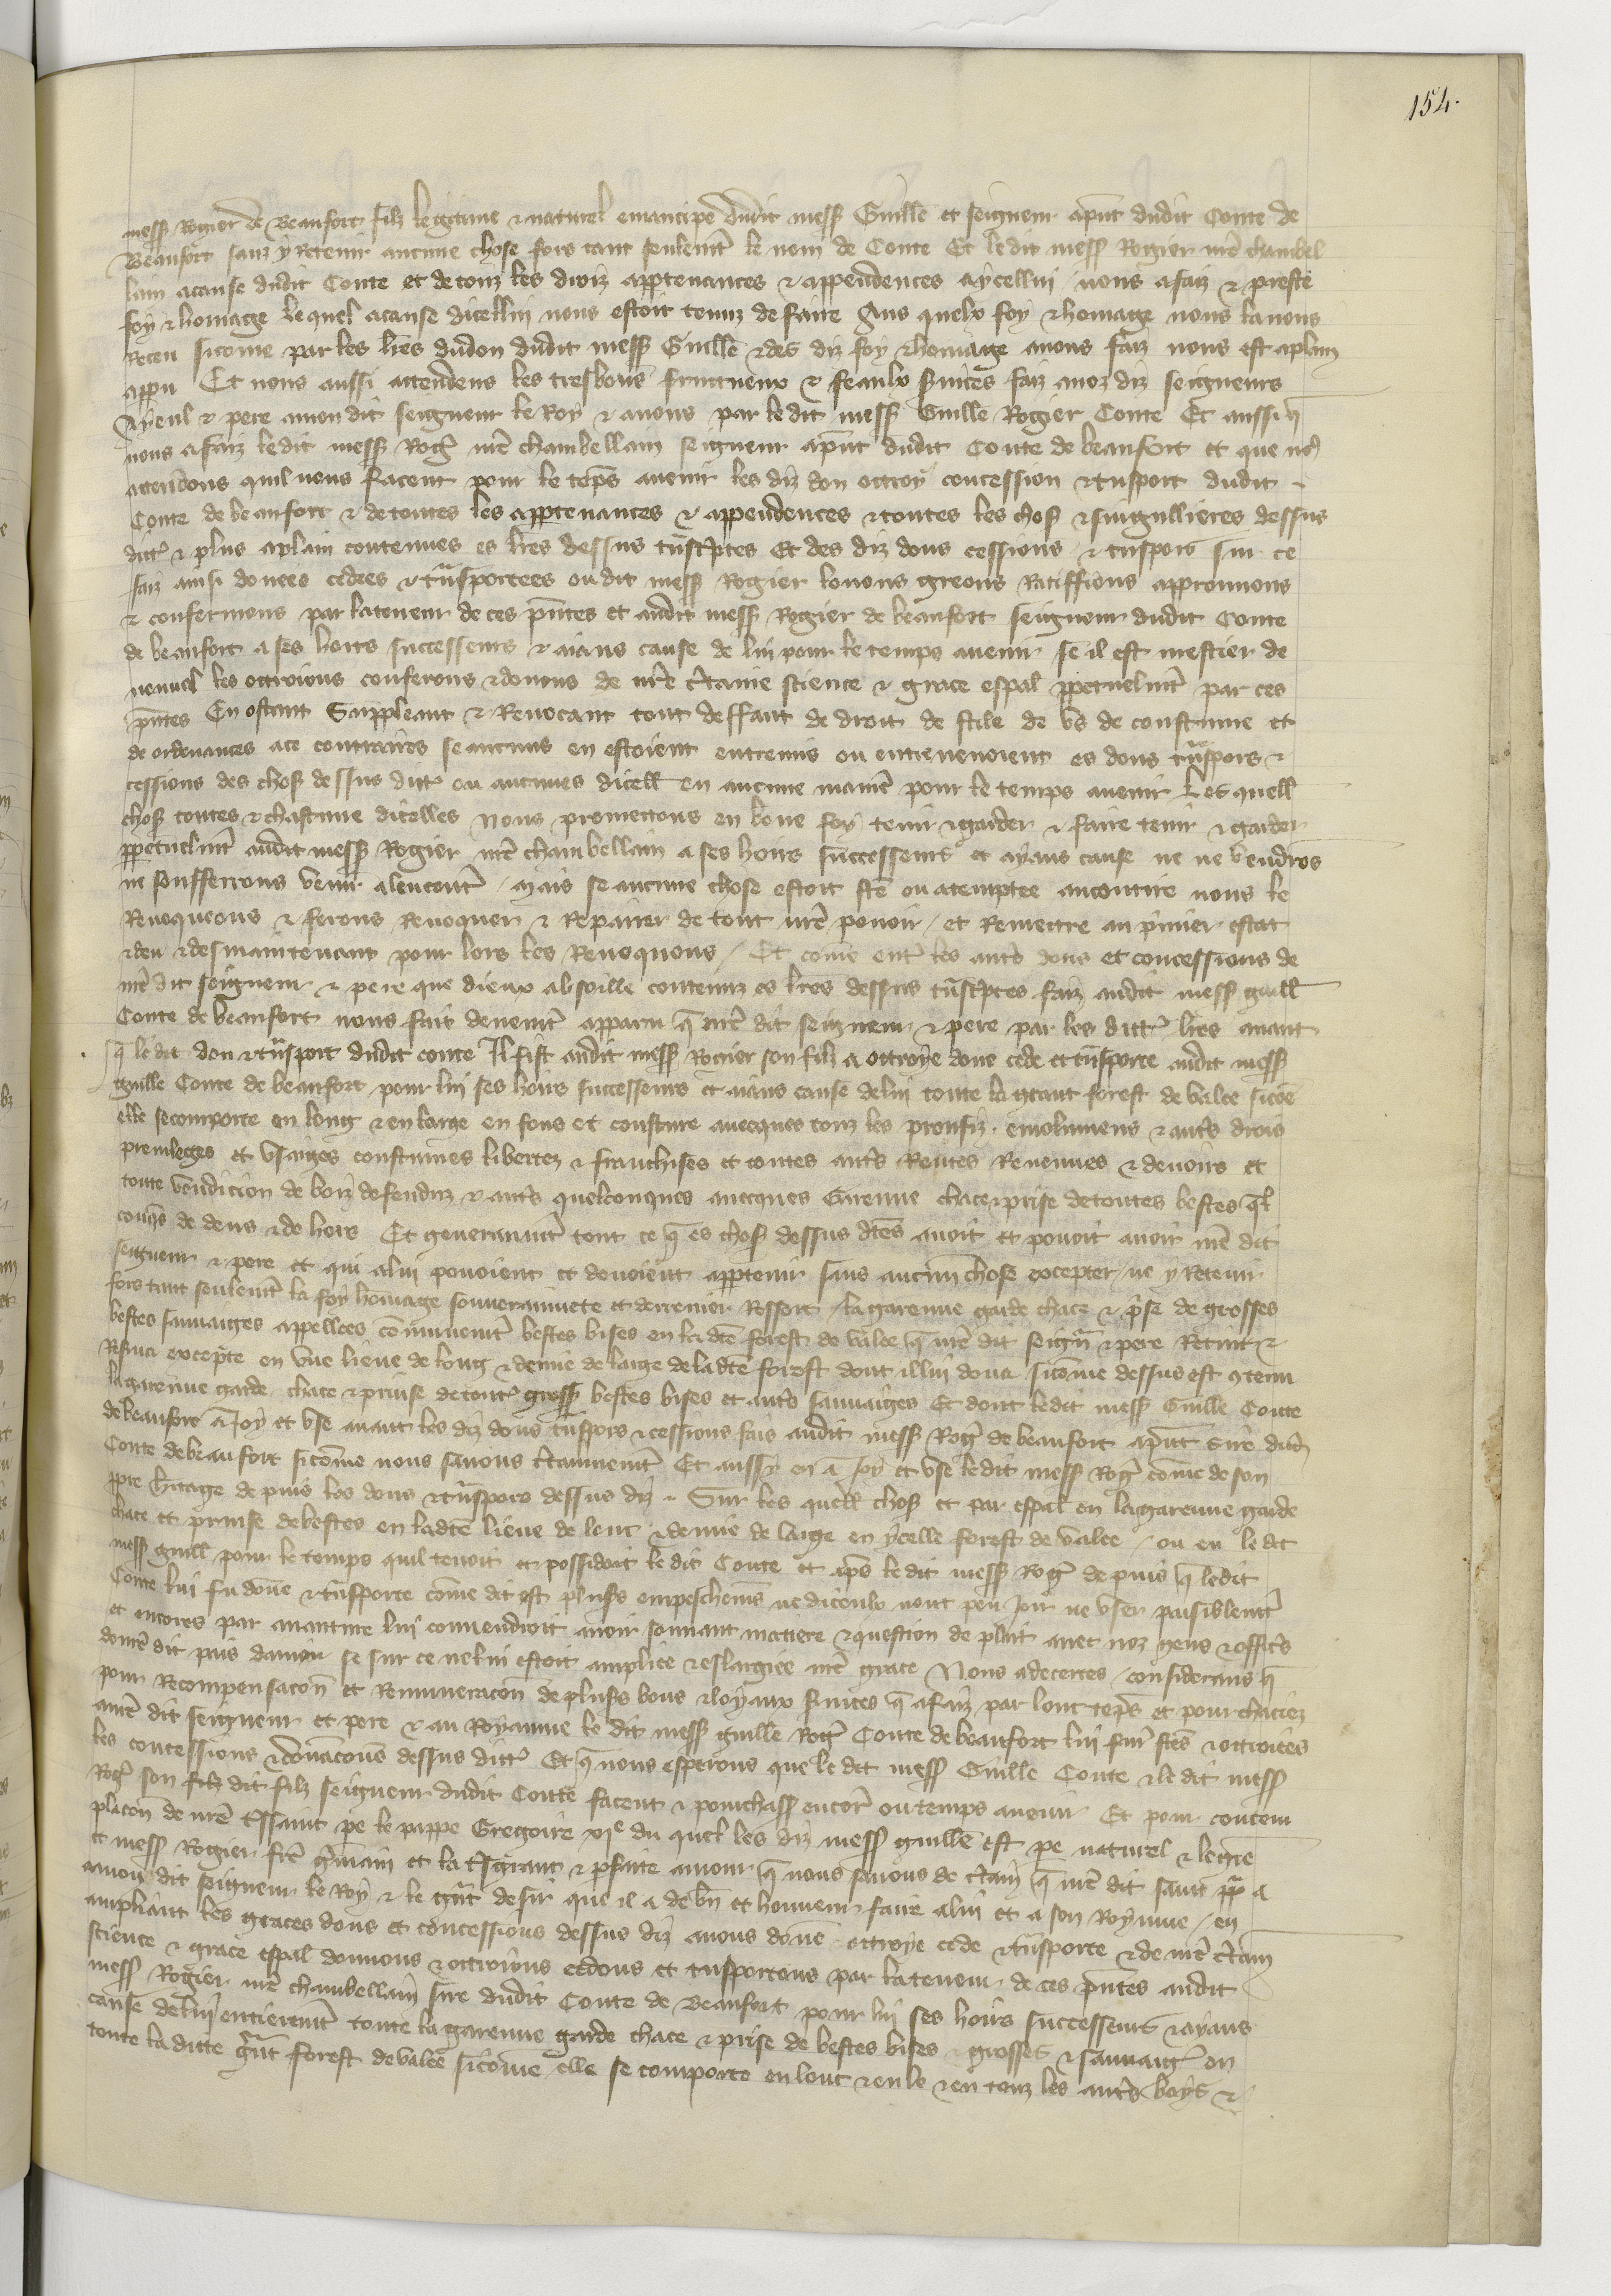 154.
mess Rogier de Beaufort filz legitime & naturel emancipe dudit mess Guille et seigneur apnt dudit Conte de
Beaufort sanz y retenir aucune chose fors tant seulemt le nom de Conte Et ledit mess Rogier nre chambel
lain acause dudit Conte et de touz les droiz apptenances & appendences aycellui nous a faiz & preste
foy & homage lequel acause dicellui nous estoit tenuz de faire Aus quelx foy & homage nous lavons
Receu sicome par les lres dudon dudit mess Guille & des diz foy & homage avons faiz nous est aplain
appu Et nous aussi attendens les tresbons fructueux & feaulx svices faiz a noz diz seigneurs
Ayeul & pere a mon dit seigneur le Roy & a nous par ledit mess Guille Rogier Conte Et aussi q
nous a faiz ledit mess Rog nre chambellain seigneur apnt dudit Conte de beaufort et que no
attendons quil nous facent pour le teps avenir les diz don ottroy concession & tnsport dudit
Conte de beaufort & de toutes les apptenances & appendences & toutes les chos & singullieres dessus
ditt & plus aplain contenues es lres dessus tnscptes Et des diz dons cessions & tnspors sur ce
faiz ainsi donees cedees & tnsportees oudit mess Rogier louons greons Ratiffions approuvons
& confermons par la teneur de ces pntes et audit mess Rogier de beaufort seigneur dudit Conte
de beaufort a ses hoirs successeurs & aians cause de lui pour le temps avenir se il est mestier de
nouvel les ottroions conferons & donons de nre ctaine science & grace espal ppetuelmt par ces
pntes En ostant Suppleant & Revocant tout deffaut de droit de stile de us de coustume et
de ordenances ace contraires se aucuns en estoient entrevenus ou entrevenoient es dons tnspors &
cessions des chos dessus ditt ou aucunes dicell en aucune manie pour le temps avenir Lesquell
chos toutes & chascune dicelles Nous promettons en bone foy tenir & garder & faire tenir & garder
ppetuelmt audit mess Rogier nre chambellain a ses hoirs successeurs et ayans cause ne ne vendros
ne soufferrons venir alencont Mais se aucune chose estoit fte ou atemptee aucontire nous le
Revoquons & ferons Revoquer & Repairer de tout nre povoir / et Remettre au pmier estat
& deu & des maintenant pour lors les Revoquons / Et come ent les auts dons et concessions de
nre dit seigneur & pere que dieux absoille contenuz es lres dessus tnscptes faiz audit mess guill
Conte de beaufort nous fait devemt apparu q nre dit seigneur & pere par les ditt lres avant
q le dit don & tnsport dudit conte Il fist audit mess Rogier son filz a ottroye done cede et tnsporte audit mess
guille Conte de beaufort pour lui ses hoirs successeurs et aians cause de lui toute la grant forest de valee sicoe
elle se comporte en long & en large en fons et cousture avecques touz les proufiz emolumens & auts drois
previleges et usaiges coustumes libertez & franchises et toutes auts Rentes Revenues & devoirs et
toute vendicion de boiz defenduz & auts quelconques avecques Garenne chace & prise de toutes bestes ql
conqs de dens & de hors Et generaumt tout ce q es chos dessus dtes avoit et povoit avoir nre dit
seigneur & pere et qui a lui povoient et devoient apptenir sans aucun chose excepter / ne y Retenir
fors tant seulemt la foy homage souverainnete et derrenier Ressort / la garenne garde chace & pse de grosses
bestes sauvaiges appellees comunemt bestes bises en la dte forest de valee q nre dit seign & pere Retint &
Rsva excepte en une lieue de long & demie de large de la dte forest dont il lui dona sicome dessus est 9tenu
la garenne garde chace & prinse de tout gross bestes bises et auts sauvaiges Et dont ledit mess Guille Conte
de beaufort a joy et use avant les diz dons tnspors & cessions fais audit mess Rog de beaufort apnt sire dud
Conte de beaufort sicome nous savons ctainnemt Et aussy en a joy et use ledit mess Rog come de son
ppre hitage depuis les dons & tnspors dessus diz Sur les quell chos et par espal en la garenne garde
chace et prinse de bestes en la dte lieue de lonc & demie de large en ycelle forest de valee / ou en le dit
mess guill pour le temps quil tenoit et possidoit le dit Conte et aps le dit mess Rog depuis q ledit
Conte lui fu done & tnsporte come dit est plusrs empeschemes ne dicelle nont peu joir ne user paisiblemt
et encores par avanture lui convendroit avoir souvant matiere & question de plait avec noz gens & offics
donre dit pais danjou se sur ce ne lui estoit amplice & eslargiee nre grace Nous adecertes / considerans q
pour Recompensacon et Remuneracon de plusrs bons & loyaux svices q a faiz par lonc teps et pourchaciez
anre dit seigneur et pere & au Royaume le dit mess guille Rog Conte de beaufort lui furt ftes & ottroiees
les concessions & donacons dessus ditt Et q nous esperons que le dit mess Guille Conte & le dit mess
Rog son filz dit filz seigneur dudit Conte facent & pourchass encor ou temps avenir Et pour contem
placon de nre tssaint pe le pappe Gregoire xje du quel les diz mess guille est pe naturel & legie
et mess Rogier fre gmain et la tsgrant & pfaite amour q nous savons de ctain q nre dit saint pp a
amon dit seigneur le Roy & le gnt desir que il a de bn et honneur faire alui et a son Royaume / en
ampliant les graces dons et concessions dessus diz avons done ottroye cede & tnsporte & de nre ctain
science & grace espal donnons & ottroions cedons et tnsportons par la teneur de ces pntes audit
mess Rogier nre chambellain sire dudit Conte de Beaufort pour lui ses hoirs successeurs & ayans
cause de lui entieremt toute la garenne garde chace & prise de bestes bises & grosses & sauvaig en
toute la ditte gnt forest de valee sicome elle se comporte en lonc & en le & en touz les auts boys &